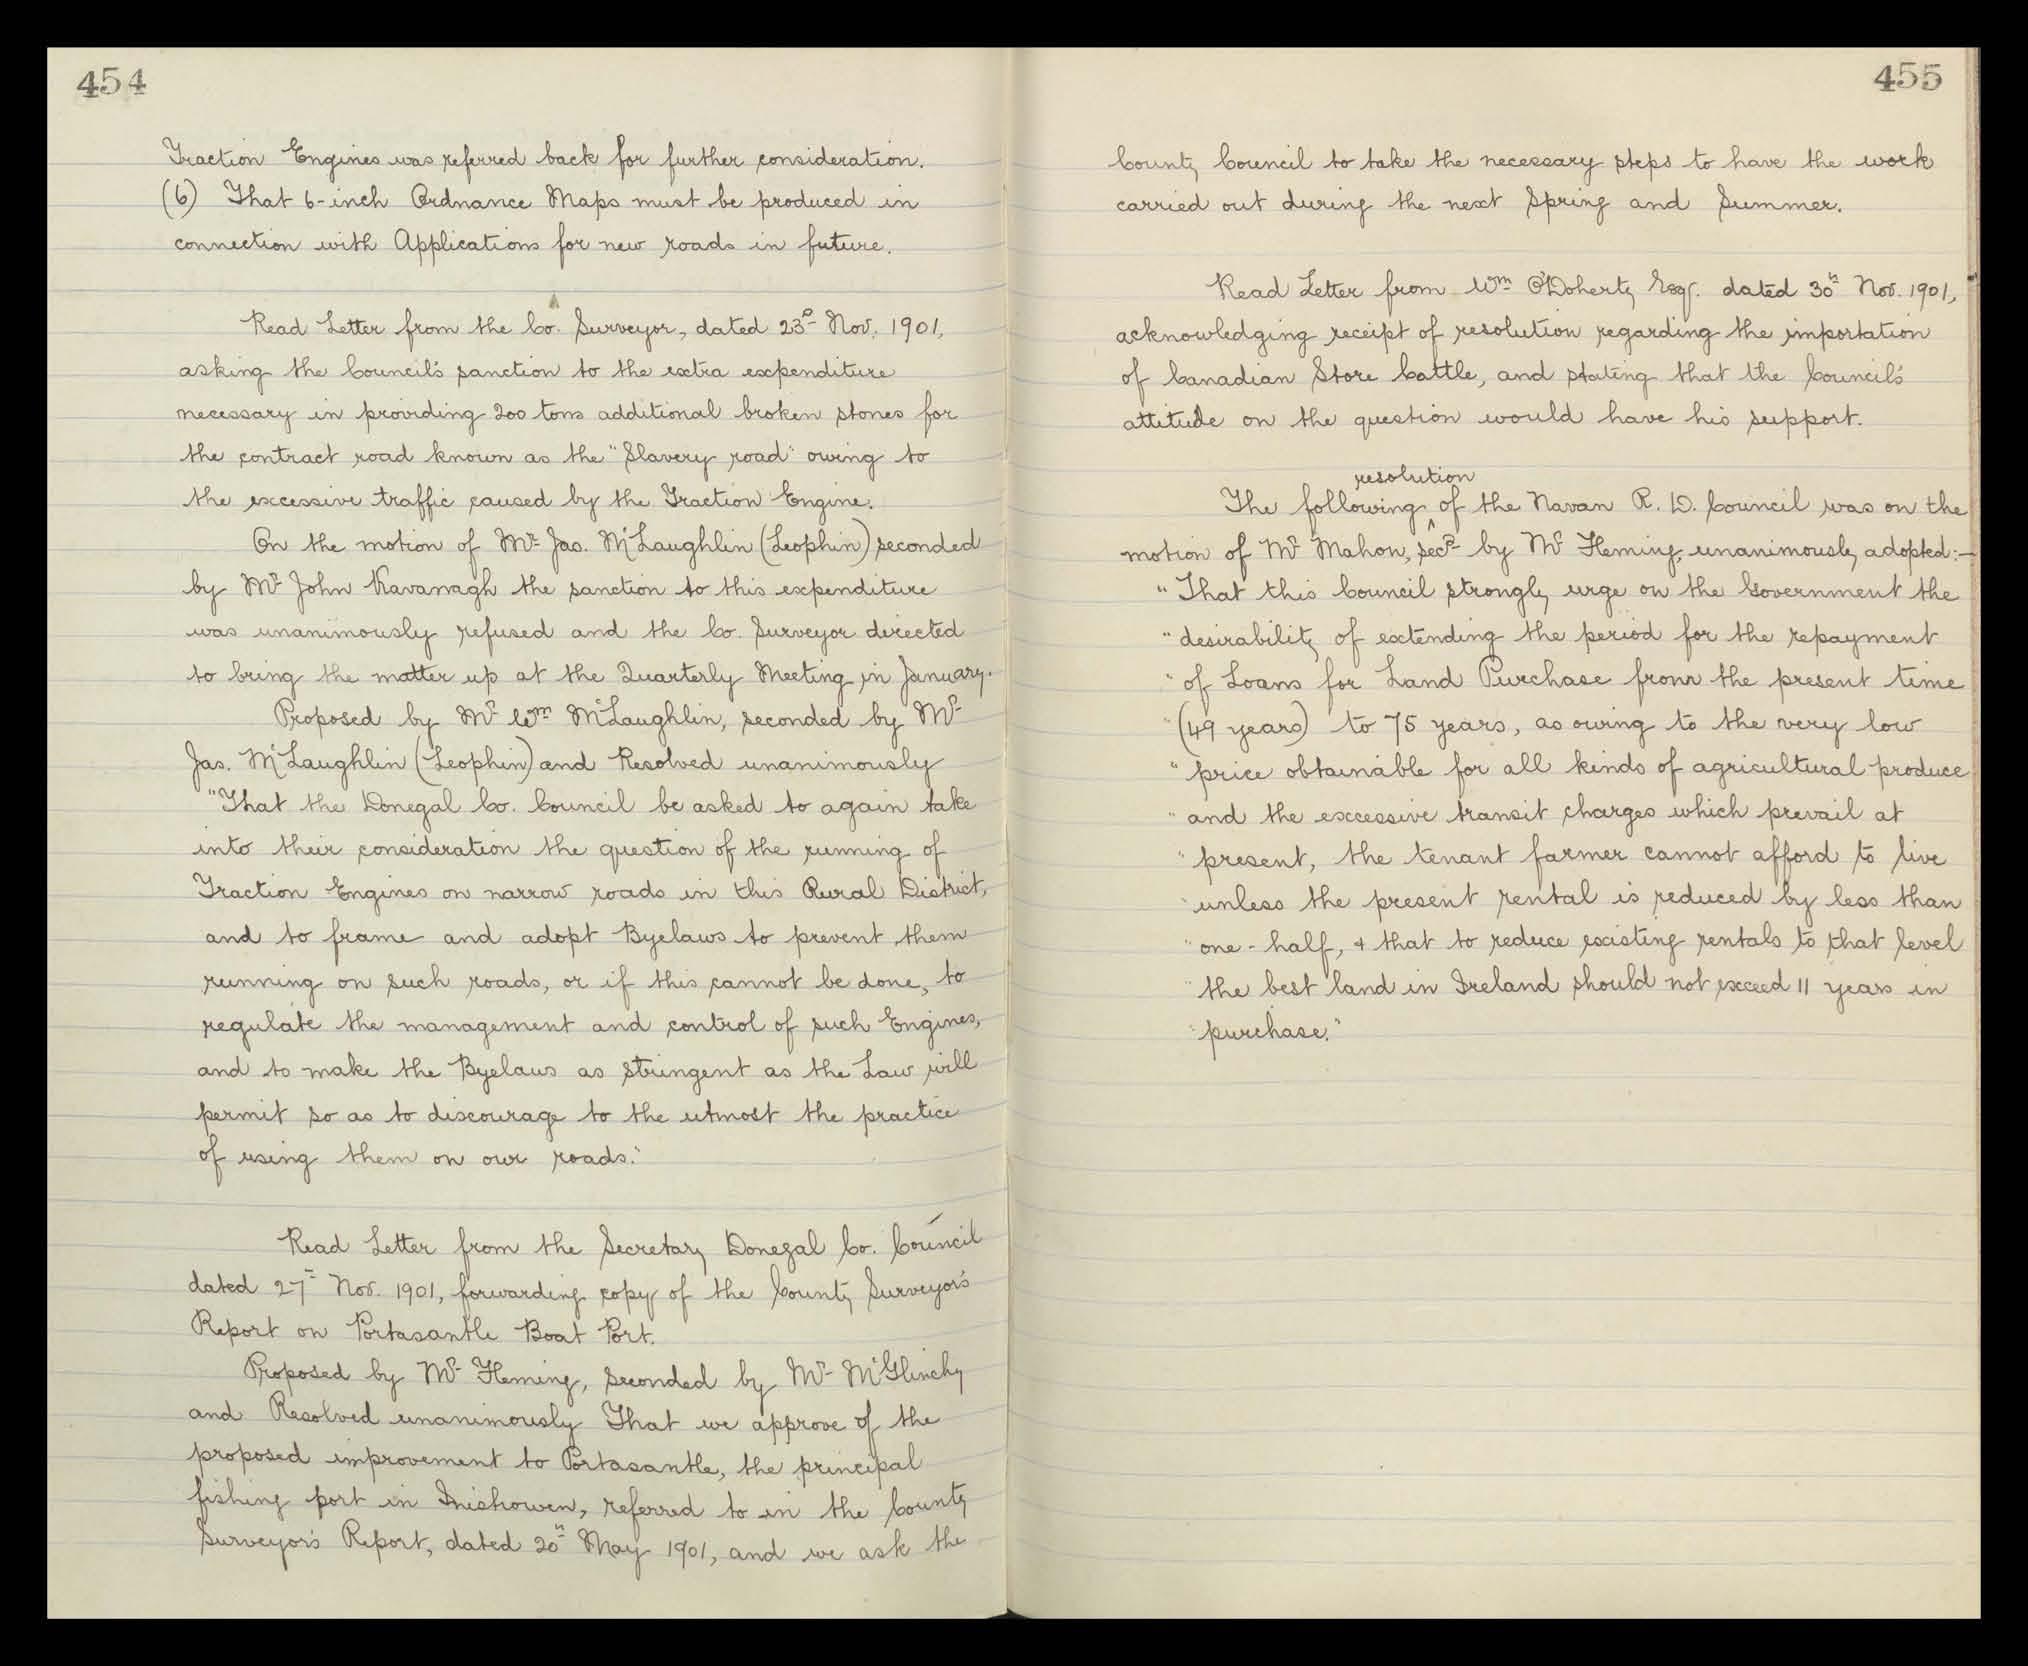 454
Traction Engines was referred back for further consideration.
(6) That 6-inch Ordnance Maps must be produced in
connection with Applications for new roads in future.
Read Letter from the Co. Surveyor, dated 23rd Nov. 1901,
asking the Council's sanction to the extra expenditure
necessary in providing 200 tons additional broken stones for
the contract road known as the "Slavery road" owing to
the excessive traffic caused by the Traction Engine.
On the motion of Mr Jas. McLaughlin (Leophin) seconded
by Mr John Kavanagh the sanction to this expenditure
was unanimously refused and the Co. Surveyor directed
to bring the matter up at the Quarterly Meeting in January.
Proposed by Mr Wm McLaughlin, seconded by Mr
Jas. McLaughlin (Leophin) and Resolved unanimously
"That the Donegal Co. Council be asked to again take
into their consideration the question of the running of
Traction Engines on narrow roads in this Rural District,
and to frame and adopt Byelaws to prevent them
running on such roads, or if this cannot be done, to
regulate the management and control of such Engines,
and to make the Byelaws as stringent as the Law will
permit so as to discourage to the utmost the practice
of using them on our roads."
Read Letter from the Secretary Donegal Co. Council
dated 27th Nov. 1901, forwarding copy of the County Surveyor's
Report on Portasantle Boat Port.
Proposed by Mr Fleming, seconded by Mr McGlinchy
and Resolved unanimously That we approve of the
proposed improvement to Portasantle, the principal
fishing port in Inishowen, referred to in the County
Surveyor's Report, dated 20th May 1901, and we ask the
455
County Council to take the necessary steps to have the work
carried out during the next Spring and Summer.
Read Letter from Wm O'Doherty Esqr. dated 30th Nov. 1901,
acknowledging receipt of resolution regarding the importation
of Canadian Store Cattle, and stating that the Council's
attitude on the question would have his support.
resolution
The following ^ of the Navan R. D. Council was on the
motion of Mr Mahon, secd by Mr Fleming, unanimously adopted:—
"That this Council strongly urge on the Government the
"desirability of extending the period for the repayment
"of Loans for Land Purchase from the present time
"(49 years) to 75 years, as owing to the very low
"price obtainable for all kinds of agricultural produce
"and the excessive transit charges which prevail at
"present, the tenant farmer cannot afford to live
"unless the present rental is reduced by less than
"one-half, & that to reduce existing rentals to that level
"the best land in Ireland should not exceed 11 years in
"purchase."